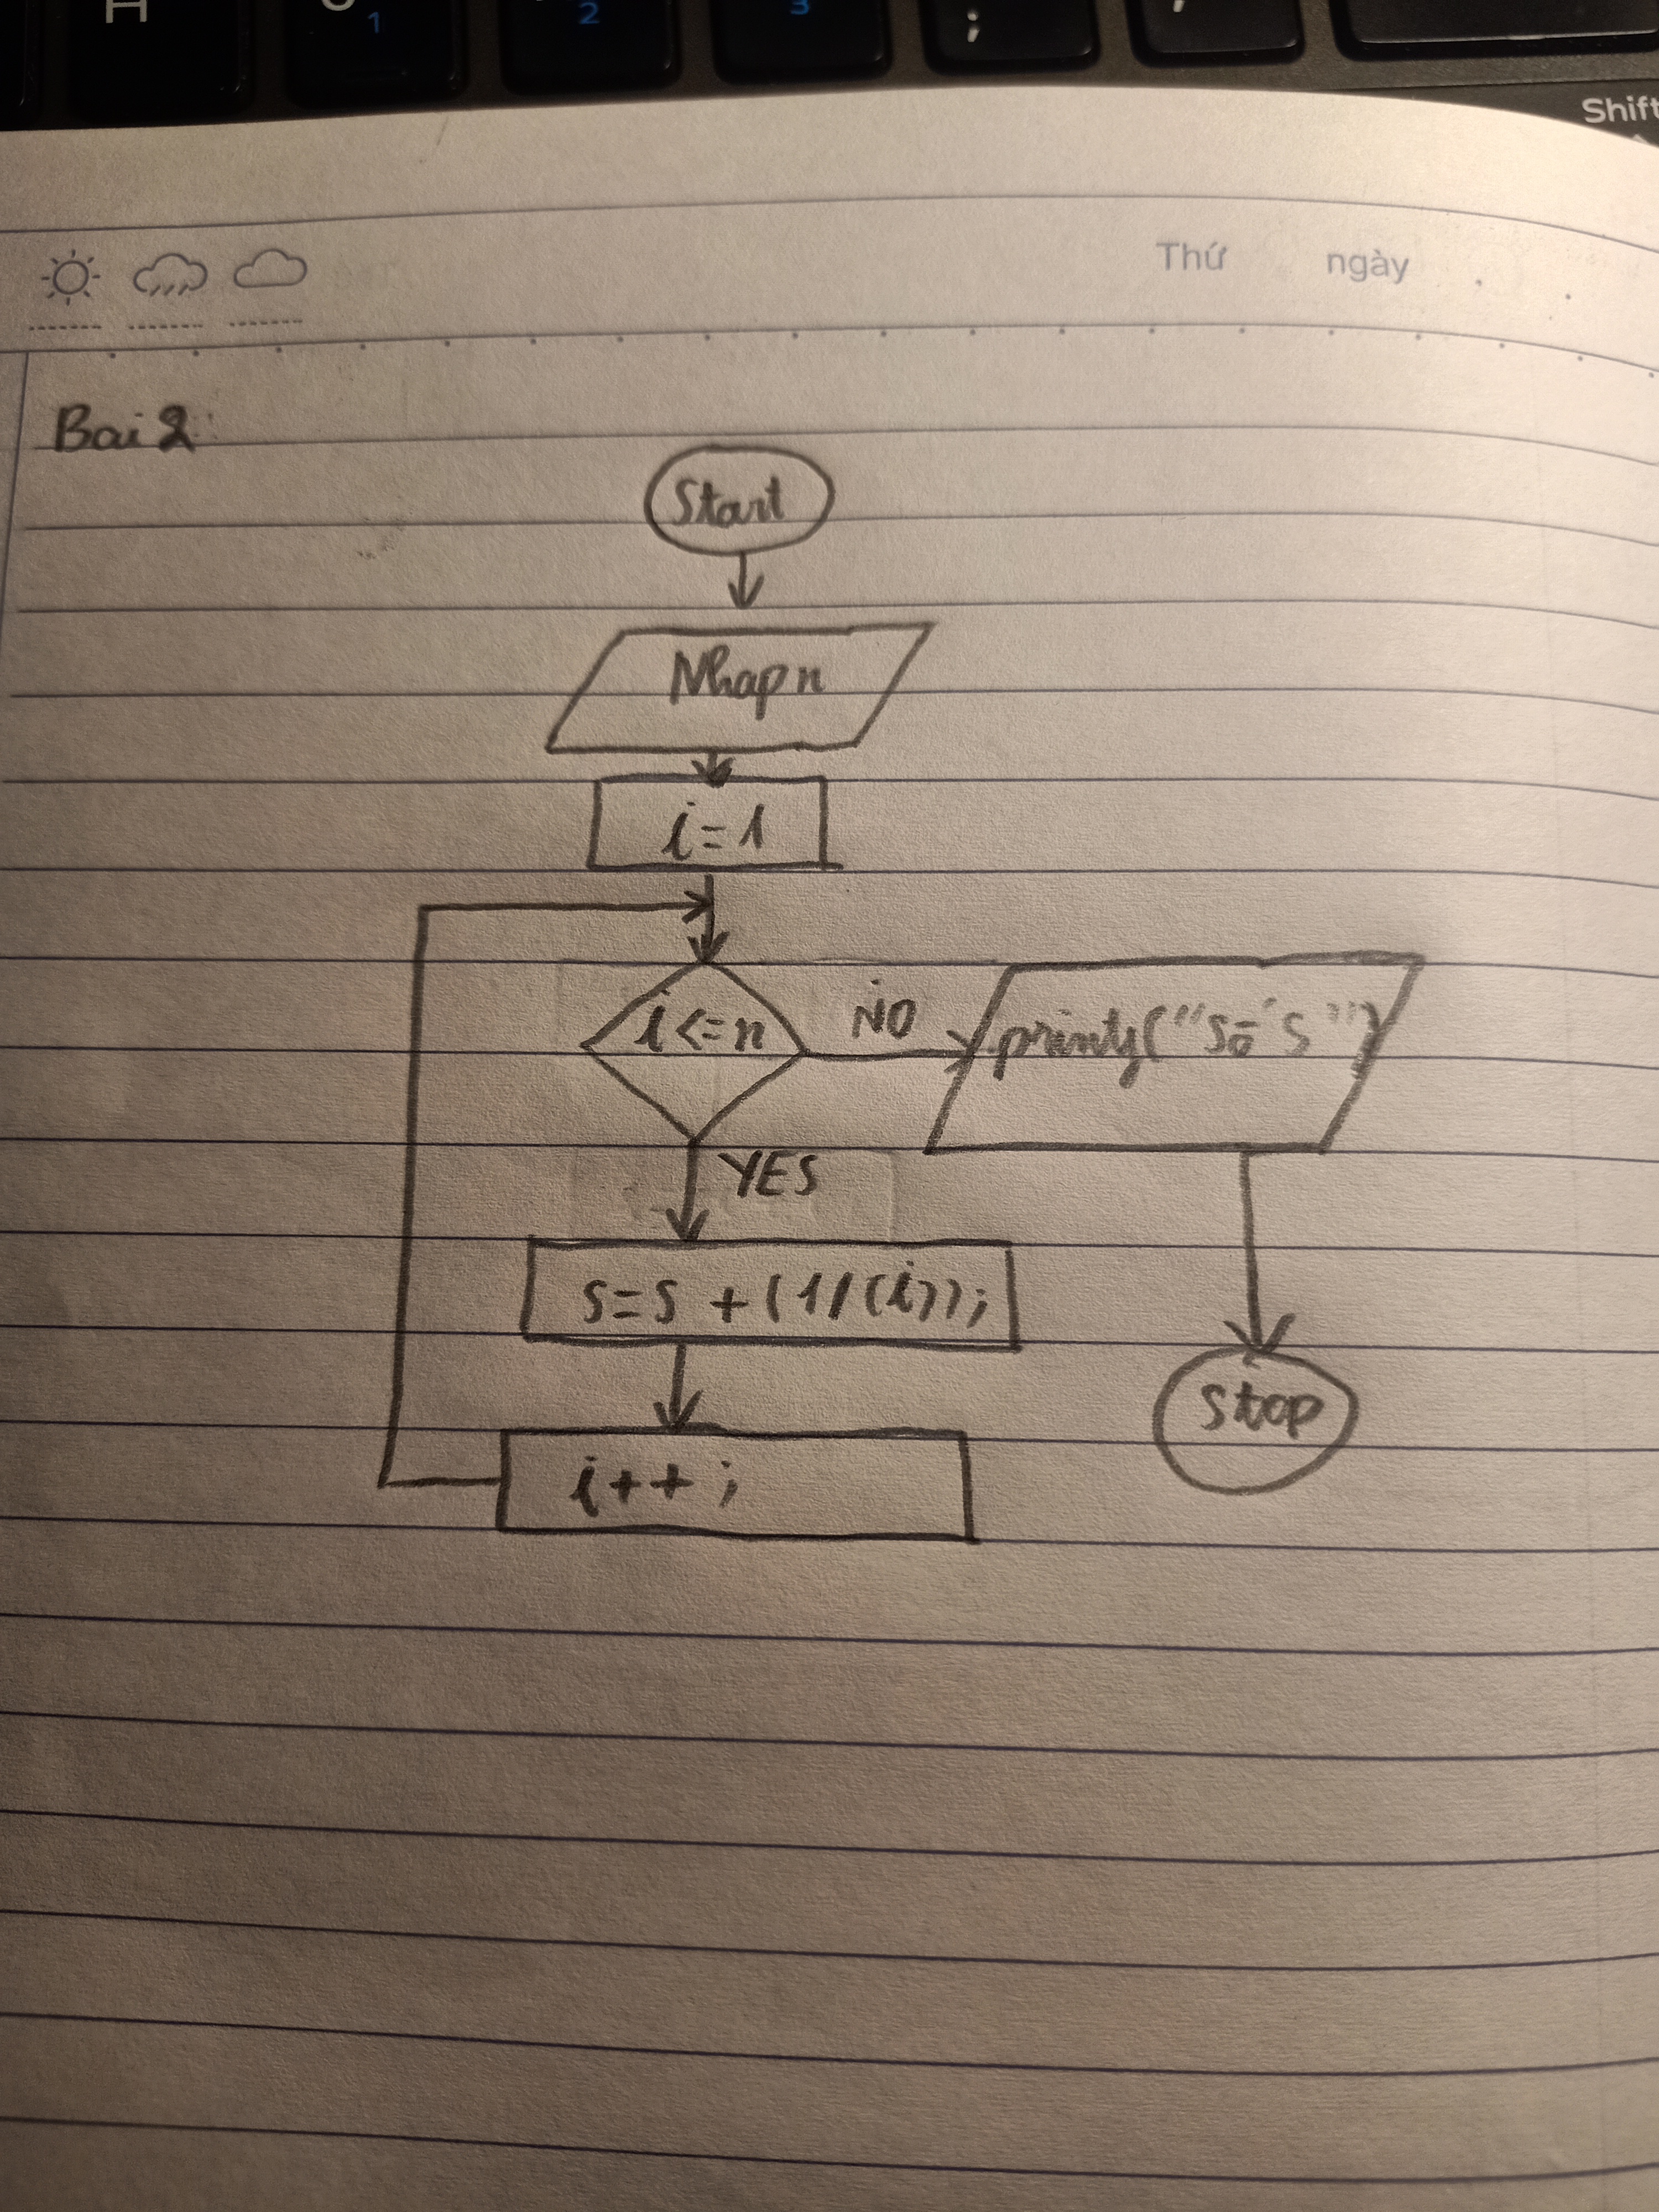 H 1 2 3 ;
Shift
Thứ ngày
Bai 2:
Start
Nhap n
i=1
i<=n
NO
printf("Số S")
YES
S=S + (1/(i));
i++;
Stop